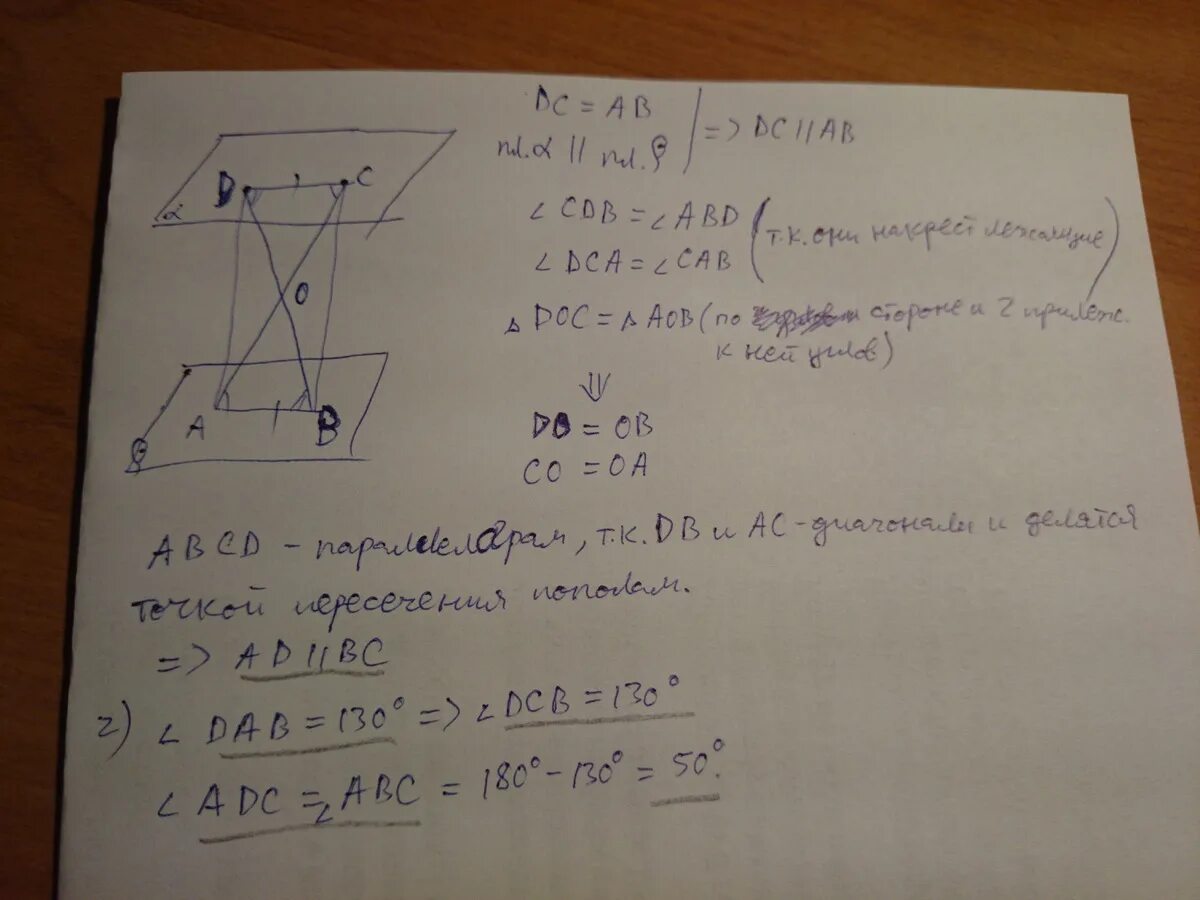 DC = AB
пл. α || пл. β => DC || AB
∠ CDB = ∠ ABD (т.к. они накрест лежащие)
∠ DCA = ∠ CAB
Δ DOC = Δ AOB (по стороне и 2 прилеж.
к ней углов)
⇓
DO = OB
CO = OA
α
D
C
O
A
B
β
ABCD - параллелограм, т.к. DB и AC - диагонали и делятся
точкой пересечения пополам.
=> AD || BC
2) ∠ DAB = 130° => ∠ DCB = 130°
∠ ADC = ∠ ABC = 180° - 130° = 50°.